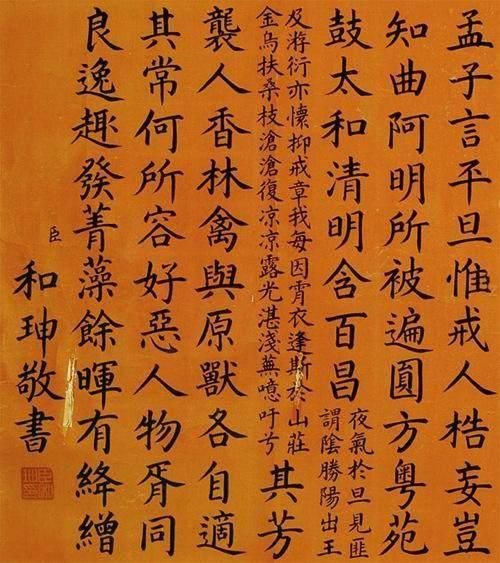 孟子言平旦惟戒人梏妄豈
知曲阿明所被遍圓方粤苑
鼓太和清明含百昌
夜氣於旦見匪
謂陰勝陽出王
及游衍亦懷抑戒章我每因霄衣逢斯於山莊
金烏扶桑枝滄滄復凉凉露光湛淺蕪噫吁兮
其芳
襲人香林禽與原獸各自適
其常何所容好惡人物胥同
良逸趣發菁藻餘暉有絳繒
臣和珅敬書